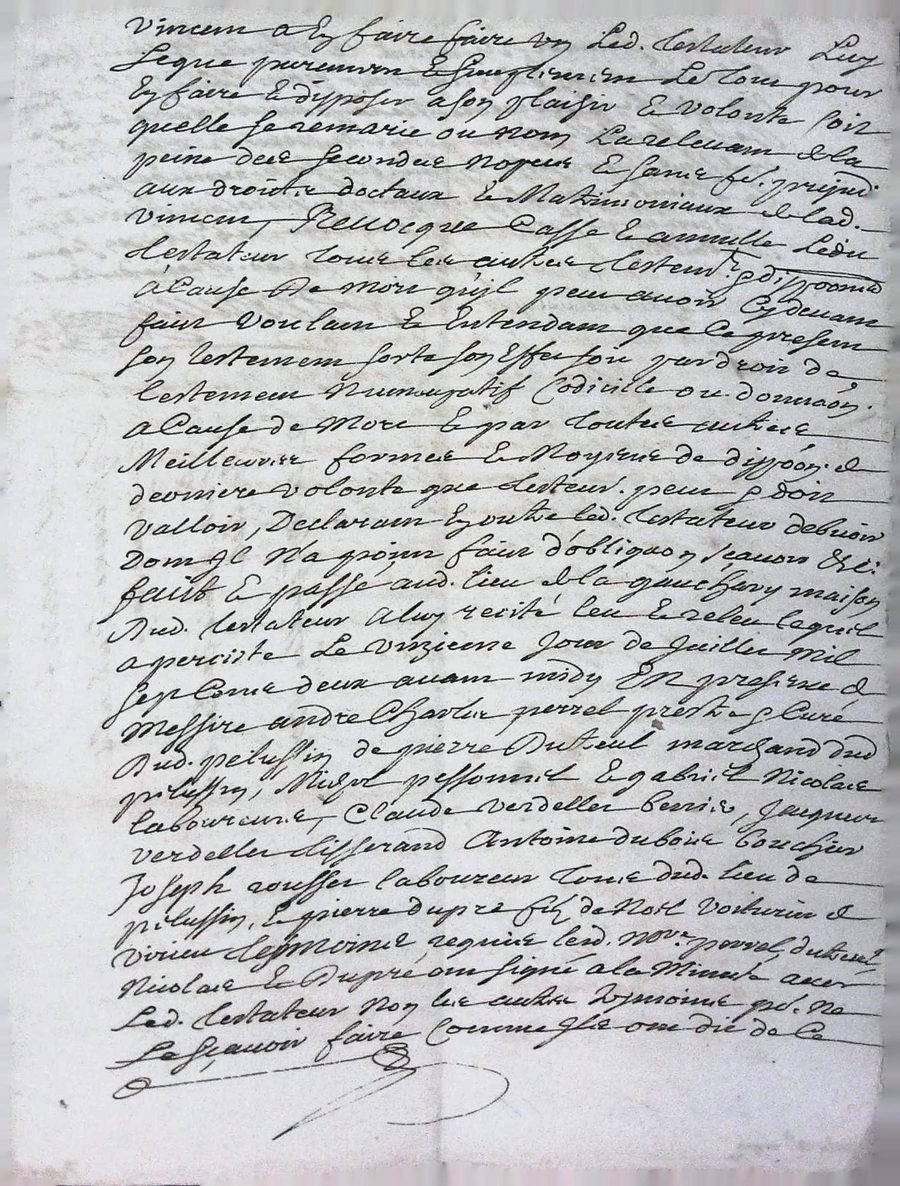 vincent a en faire faire un Led. testateur Luy
Legue purement & simplement Le tout pour
En faire & dispozer a son plaisir & volonté soit
quelle se remarie ou nom La relevant de la
peine des secondes nopces & sans prejud.
aux droits doctaux & Matrimoniaux de lad.
vincent, Revocque Casse & annulle Ledit
testateur tous les autres testem.ts & dispponõns
à Cause De mort qu'il peut avoir Cy devant
fait voulant & Entendant que Ce present
son testement sorte son Effet soit par droit de
testement Nuncupatif Codicille ou donnaõn.
a Cause de Mort & par toutes autres
Meilleures formes & Moyens de dippõõn. de
derniere volonté que testeur. peut & doit
valloir, Declarant En outre led. testateur debvoir
Dont Il n'a point fait d'obligaõn sçavoir
faict & passé aud. lieu de la gauchary maison
Dud. testateur a luy recité leu & releu lequel
a perciste Le unzieme Jour de Juillet mil
sept Cents deux avant midy En presence de
Messire andre Charles perrel prestre & Curé
Dud. pelussin de pierre Duteul marchand dud
pelussin, Michel pessonnel & gabriel Nicolas
laboureurs, Claude verdellet, Jacques
verdellet tisserand Antoine dubois boucher
Joseph rousset laboureur tous dud. lieu de
pelussin, & pierre dupre fils de Noel voiturier de
virieu tesmoins requis lesd. perrel, duteul
Nicolas & Dupré ont signé a la Minute avec
Led. testateur Non les autres tesmoins p.t. Ne
Le sçavoir faire Comme Ils ont dit de Ce